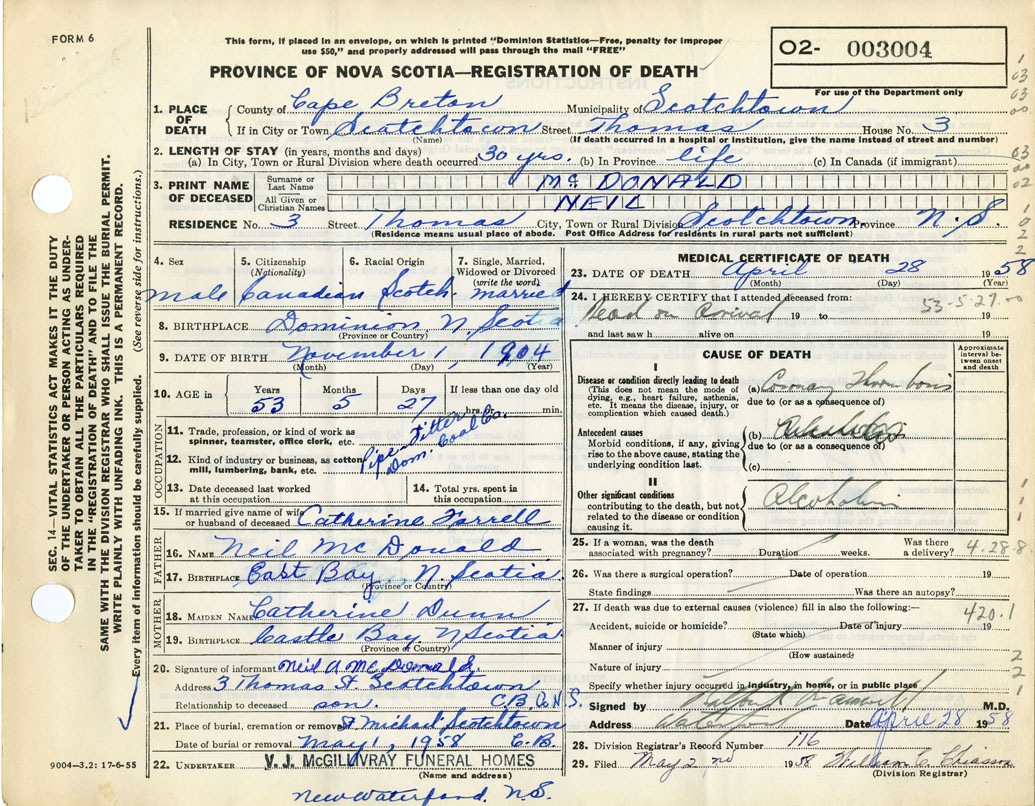 FORM 6
This form, if placed in an envelope, on which is printed "Dominion Statistics—Free, penalty for improper
use $50," and properly addressed will pass through the mail "FREE"
O2- 003004
For use of the Department only
PROVINCE OF NOVA SCOTIA—REGISTRATION OF DEATH
SEC. 14—VITAL STATISTICS ACT MAKES IT THE DUTY
OF THE UNDERTAKER OR PERSON ACTING AS UNDER-
TAKER TO OBTAIN ALL THE PARTICULARS REQUIRED
IN THE "REGISTRATION OF DEATH" AND TO FILE THE
SAME WITH THE DIVISION REGISTRAR WHO SHALL ISSUE THE BURIAL PERMIT.
WRITE PLAINLY WITH UNFADING INK. THIS IS A PERMANENT RECORD.
Every item of information should be carefully supplied. (See reverse side for instructions.)
1. PLACE OF DEATH
County of Cape Breton Municipality of Scotchtown
If in City or Town Scotchtown Street Thomas House No. 3
(Name) (If death occurred in a hospital or institution, give the name instead of street and number)
2. LENGTH OF STAY (in years, months and days)
(a) In City, Town or Rural Division where death occurred 30 yrs. (b) In Province life (c) In Canada (if immigrant)
3. PRINT NAME OF DECEASED
Surname or Last Name Mc DONALD
All Given or Christian Names NEIL
RESIDENCE No. 3 Street Thomas City, Town or Rural Division Scotchtown Province N.S.
(Residence means usual place of abode. Post Office Address for residents in rural parts not sufficient)
4. Sex 5. Citizenship (Nationality) 6. Racial Origin 7. Single, Married, Widowed or Divorced (write the word)
male Canadian Scotch married
8. BIRTHPLACE Dominion, N. Scotia
(Province or Country)
9. DATE OF BIRTH November 1, 1904
(Month) (Day) (Year)
10. AGE in Years Months Days If less than one day old
53 5 27 hrs. or min.
OCCUPATION
11. Trade, profession, or kind of work as
spinner, teamster, office clerk, etc. Pipe Fitter
12. Kind of industry or business, as cotton
mill, lumbering, bank, etc. Dom. Coal Co.
13. Date deceased last worked
at this occupation
14. Total yrs. spent in
this occupation
15. If married give name of wife
or husband of deceased Catherine Farrell
FATHER
16. NAME Neil McDonald
17. BIRTHPLACE East Bay, N. Scotia
(Province or Country)
MOTHER
18. MAIDEN NAME Catherine Dunn
19. BIRTHPLACE Castle Bay, N Scotia
(Province or Country)
20. Signature of informant Neil A McDonald
Address 3 Thomas St Scotchtown
Relationship to deceased son. C.B. N.S.
21. Place of burial, cremation or removal St Michael, Scotchtown
Date of burial or removal May 1, 1958 C.B.
22. UNDERTAKER V. J. McGILLIVRAY FUNERAL HOMES
(Name and address)
New Waterford, N.S.
9004—3.2: 17-6-55
MEDICAL CERTIFICATE OF DEATH
23. DATE OF DEATH April 28 1958
(Month) (Day) (Year)
24. I HEREBY CERTIFY that I attended deceased from:
53-5-27.00
Dead on Arrival 19 to 19
and last saw h alive on 19
CAUSE OF DEATH
Approximate interval be-
tween onset and death
I
Disease or condition directly leading to death
(This does not mean the mode of
dying, e.g., heart failure, asthenia,
etc. It means the disease, injury, or
complication which caused death.)
(a) Coronary Thrombosis
due to (or as a consequence of)
Antecedent causes
Morbid conditions, if any, giving
rise to the above cause, stating the
underlying condition last.
(b)
due to (or as a consequence of)
(c)
II
Other significant conditions
contributing to the death, but not
related to the disease or condition
causing it.
Alcoholism
25. If a woman, was the death
associated with pregnancy? Duration weeks. Was there
a delivery? 4.28.8
26. Was there a surgical operation? Date of operation 19
State findings Was there an autopsy?
27. If death was due to external causes (violence) fill in also the following:—
420.1
Accident, suicide or homicide? Date of injury 19
(State which)
Manner of injury
(How sustained)
Nature of injury
Specify whether injury occurred in industry, in home, or in public place
Signed by M.D.
Address Waterford Date April 28 1958
28. Division Registrar's Record Number 116
29. Filed May 2nd 1958 William C. Chiasson
(Division Registrar)